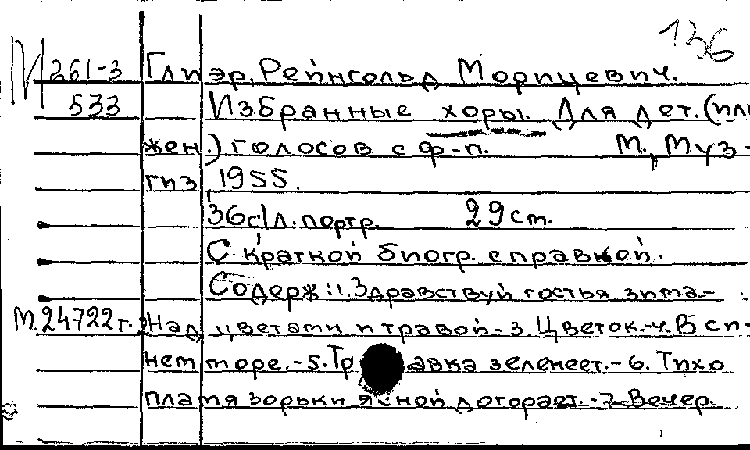 136
М 261-3 Глиэр, Рейнгольд Морицевич.
533 Избранные хоры. Для дет. (или
жен.) голосов с ф-п. М., Муз-
гиз, 1955.
36с. 1 л. портр. 29 см.
С краткой биогр. справкой.
Содерж.: 1. Здравствуй, гостья зима.-
М.24722г. Над цветами и травой.-3. Цветок.-4. В си-
нем море.-5. Травка зеленеет.-6. Тихо
пламя зорьки ясной догорает.-7. Вечер.